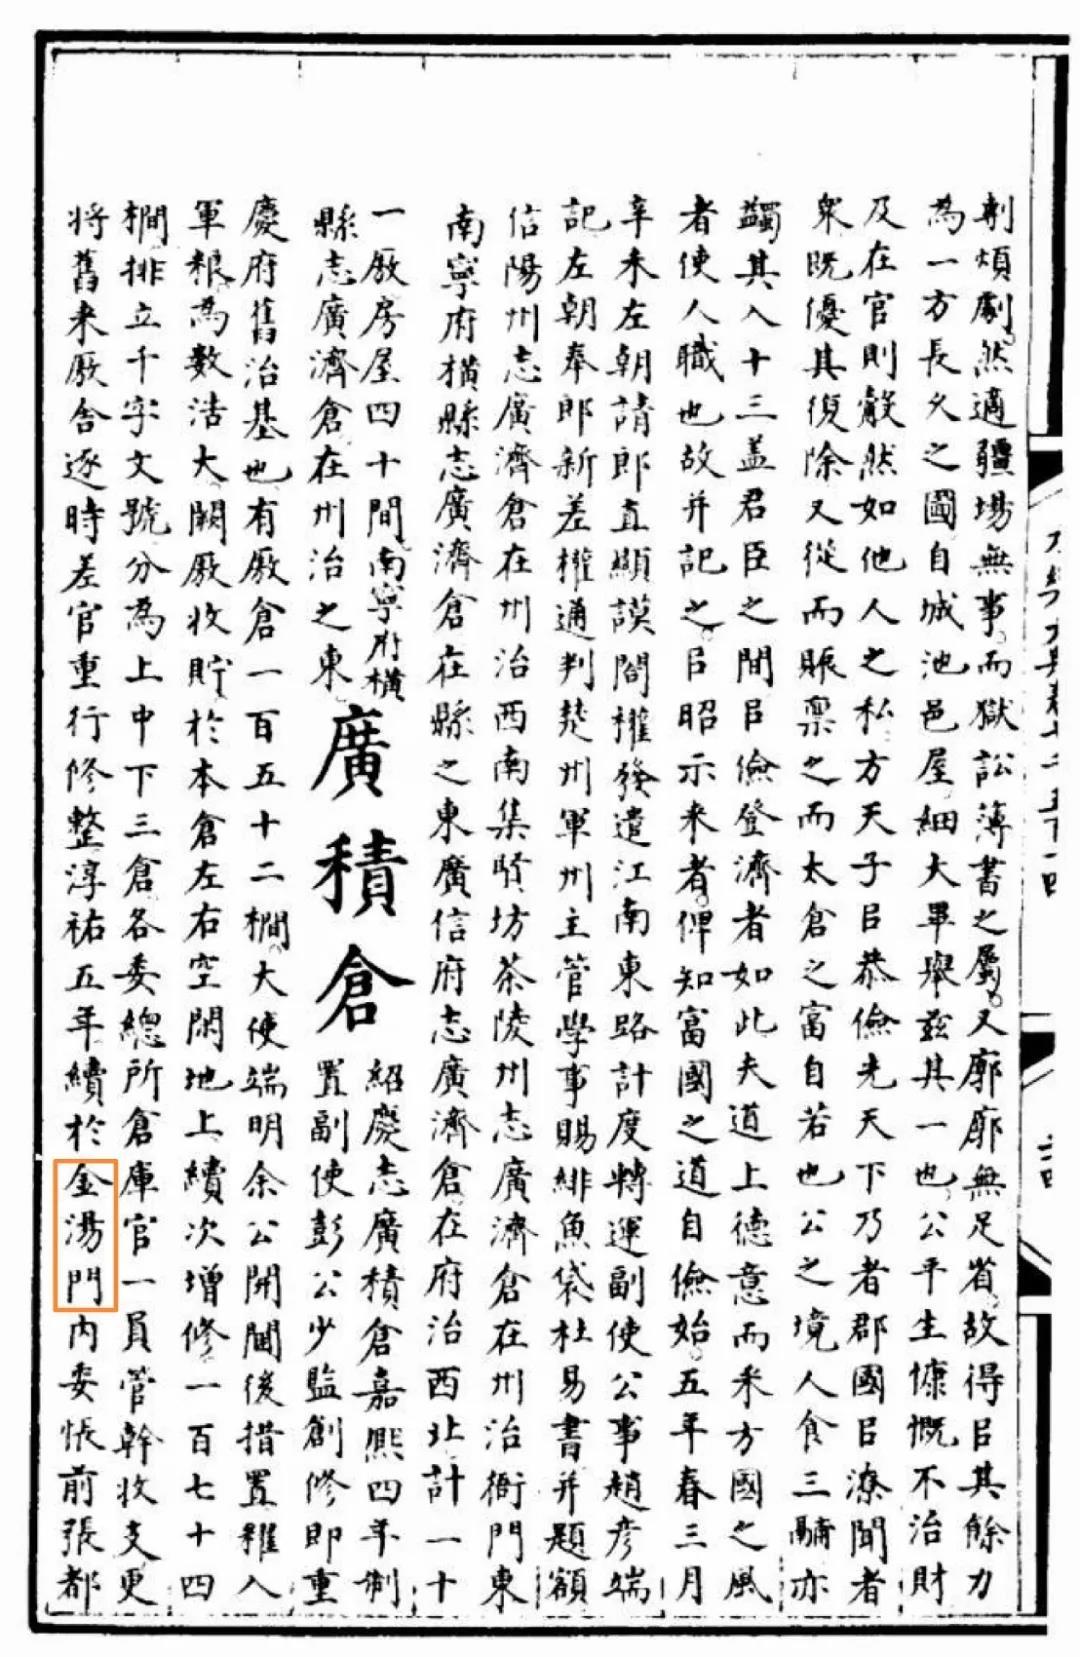 永樂大典卷七千五百十四
二四
剸煩劇然適疆場無事而獄訟薄書之屬又廓廓無足省故得㠯其餘力
為一方長久之國自城池邑屋細大畢舉兹其一也公平生慷慨不治財
及在官則觳然如他人之私方天子㠯恭儉先天下乃者郡國㠯潦聞者
衆既優其復除又從而賑稟之而太倉之富自若也公之境人食三鬴亦
蠲其入十三盖君臣之間㠯儉登濟者如此夫道上德意而釆方國之風
者使人職也故并記之㠯昭示来者俾知富國之道自儉始五年春三月
辛未左朝請郎直顯謨閣權發遣江南東路計度轉運副使公事趙彦端
記左朝奉郎新差權通判楚州軍州主管學事賜緋魚袋杜易書并題額
信陽州志廣濟倉在州治西南集賢坊茶陵州志廣濟倉在州治衙門東
南寧府橫縣志廣濟倉在縣之東廣信府志廣濟倉在府治西北計一十
一厫房屋四十間南寧府橫
縣志廣濟倉在州治之東
廣積倉
紹慶志廣積倉嘉熙四年制
置副使彭公少監創修即重
慶府舊治基也有厫倉一百五十二橺大使端明余公開閫後措置糴入
軍粮為數浩大闕厫收貯於本倉左右空閑地上續次增修一百七十四
橺排立千字文號分為上中下三倉各委總所倉庫官一員管幹收支更
将舊来厫舍逐時差官重行修整淳祐五年續於金湯門内委帳前張都